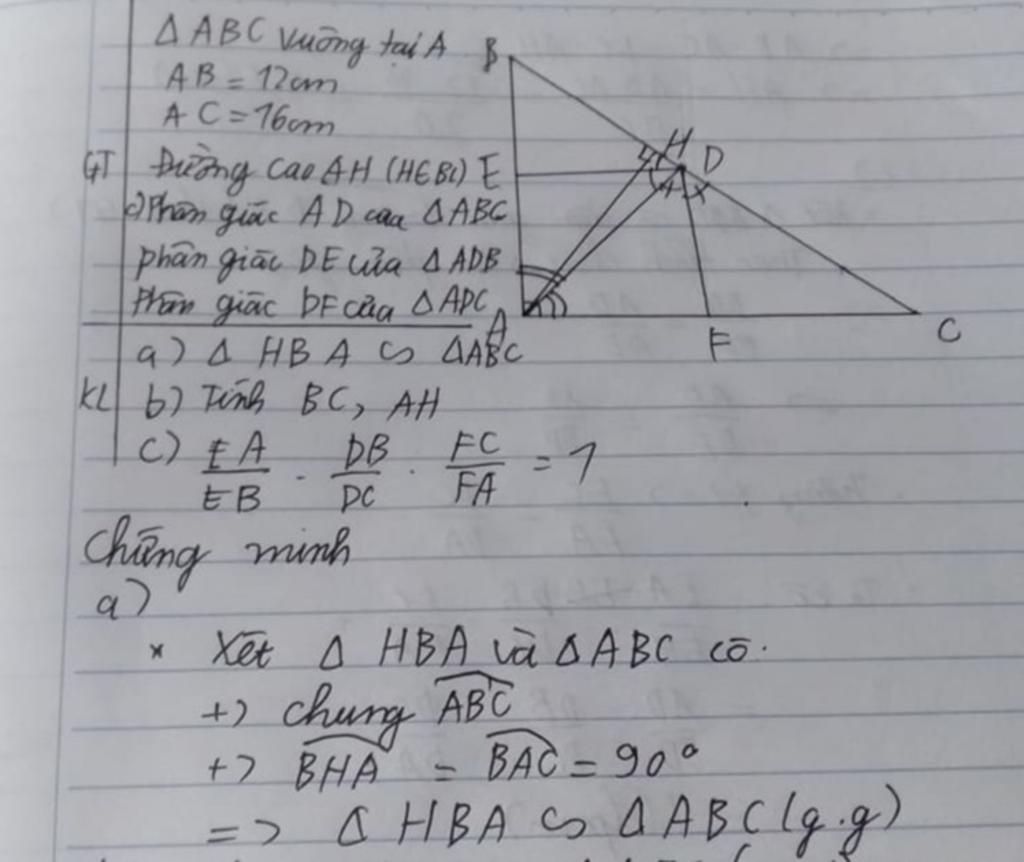 Δ ABC vuông tại A
AB = 12cm
AC = 16cm
GT Đường cao AH (H∈BC)
c) Phân giác AD của ΔABC
phân giác DE của Δ ADB
Phân giác DF của Δ ADC
a) Δ HBA ∽ ΔABC
KL b) Tính BC, AH
c) EA/EB . DB/DC . FC/FA = 1
B
H D
E
A
F
C
Chứng minh
a)
* Xét Δ HBA và Δ ABC có.
+) chung \widehat{ABC}
+) \widehat{BHA} = \widehat{BAC} = 90°
=> Δ HBA ∽ Δ ABC (g.g)